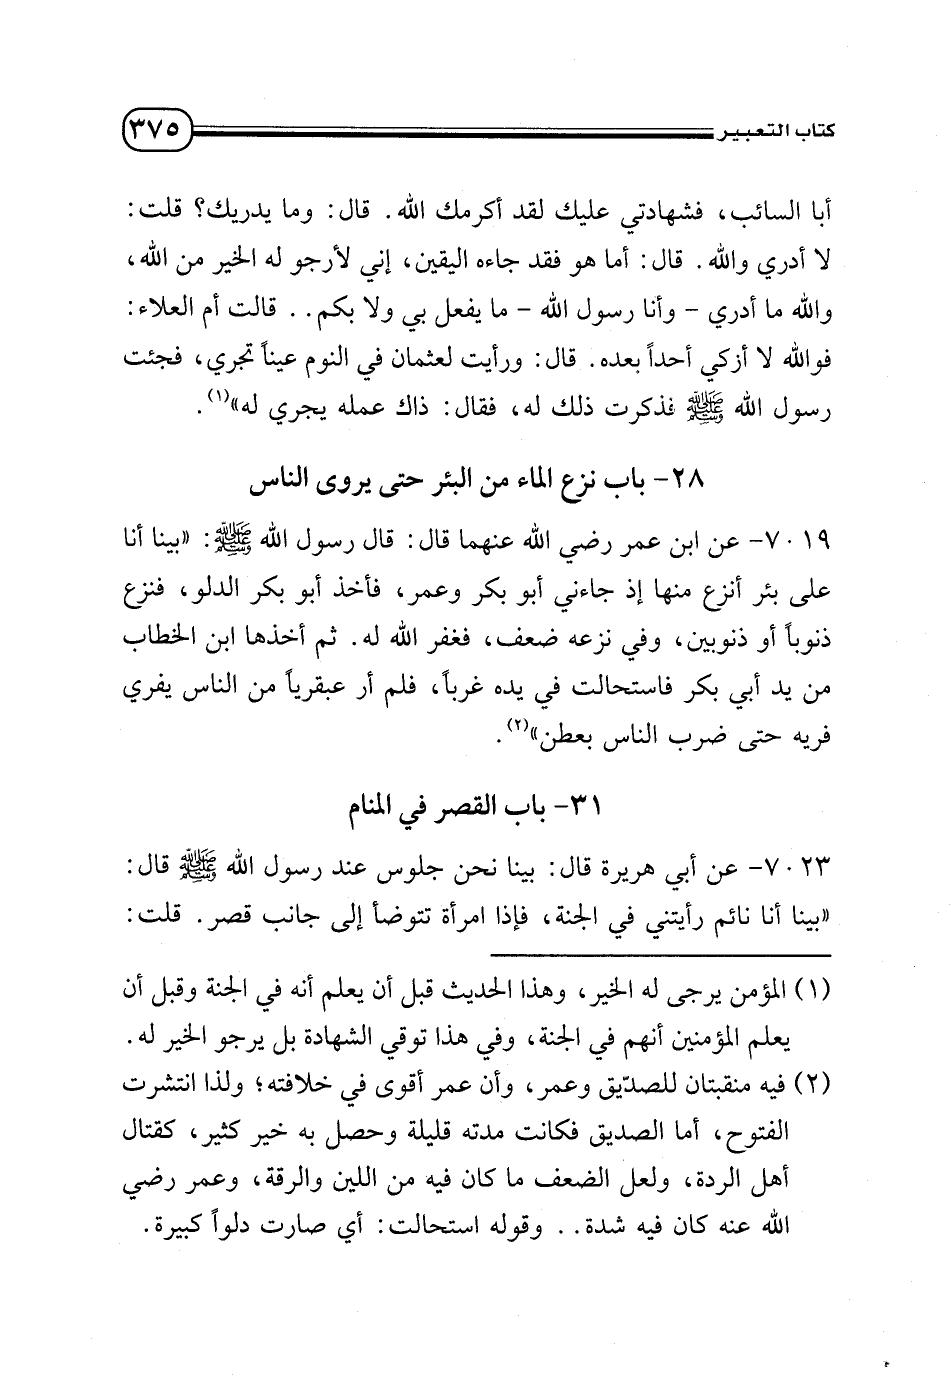 كتاب التعبير ٣٧٥
أبا السائب، فشهادتي عليك لقد أكرمك الله. قال: وما يدريك؟ قلت:
لا أدري والله. قال: أما هو فقد جاءه اليقين، إني لأرجو له الخير من الله،
والله ما أدري - وأنا رسول الله - ما يفعل بي ولا بكم.. قالت أم العلاء:
فوالله لا أزكي أحداً بعده. قال: ورأيت لعثمان في النوم عيناً تجري، فجئت
رسول الله ﷺ فذكرت ذلك له، فقال: ذاك عمله يجري له»(١).
٢٨- باب نزع الماء من البئر حتى يروى الناس
٧٠١٩- عن ابن عمر رضي الله عنهما قال: قال رسول الله ﷺ: «بينا أنا
على بئر أنزع منها إذ جاءني أبو بكر وعمر، فأخذ أبو بكر الدلو، فنزع
ذنوباً أو ذنوبين، وفي نزعه ضعف، فغفر الله له. ثم أخذها ابن الخطاب
من يد أبي بكر فاستحالت في يده غرباً، فلم أر عبقرياً من الناس يفري
فريه حتى ضرب الناس بعطن»(٢).
٣١- باب القصر في المنام
٧٠٢٣- عن أبي هريرة قال: بينا نحن جلوس عند رسول الله ﷺ قال:
«بينا أنا نائم رأيتني في الجنة، فإذا امرأة تتوضأ إلى جانب قصر. قلت:
(١) المؤمن يرجى له الخير، وهذا الحديث قبل أن يعلم أنه في الجنة وقبل أن
يعلم المؤمنين أنهم في الجنة، وفي هذا توقي الشهادة بل يرجو الخير له.
(٢) فيه منقبتان للصدّيق وعمر، وأن عمر أقوى في خلافته؛ ولذا انتشرت
الفتوح، أما الصديق فكانت مدته قليلة وحصل به خير كثير، كقتال
أهل الردة، ولعل الضعف ما كان فيه من اللين والرقة، وعمر رضي
الله عنه كان فيه شدة.. وقوله استحالت: أي صارت دلواً كبيرة.